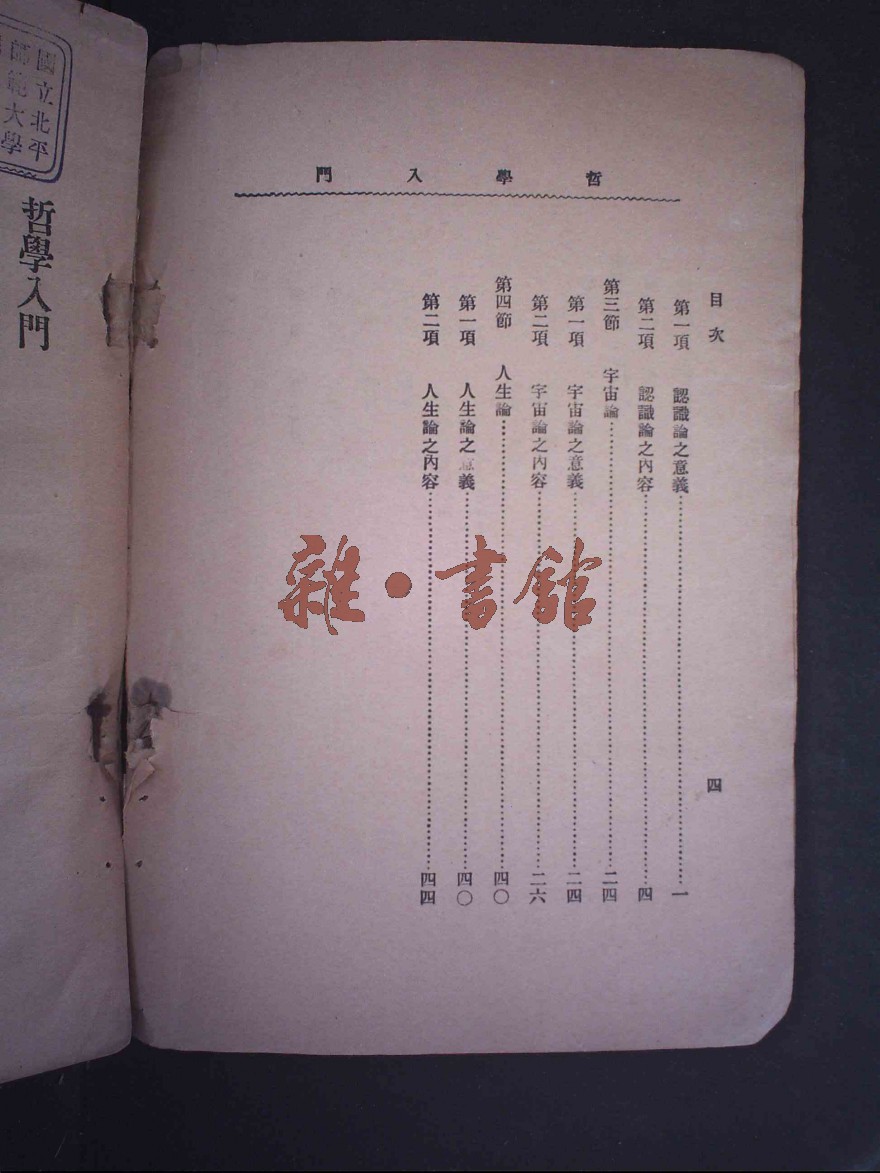 哲學入門
目次
四
第一項 認識論之意義……一
第二項 認識論之內容……四
第三節 宇宙論……二四
第一項 宇宙論之意義……二四
第二項 宇宙論之內容……二六
第四節 人生論……四〇
第一項 人生論之意義……四〇
第二項 人生論之內容……四四
雜·書館
國立北平
師範大學
哲學入門